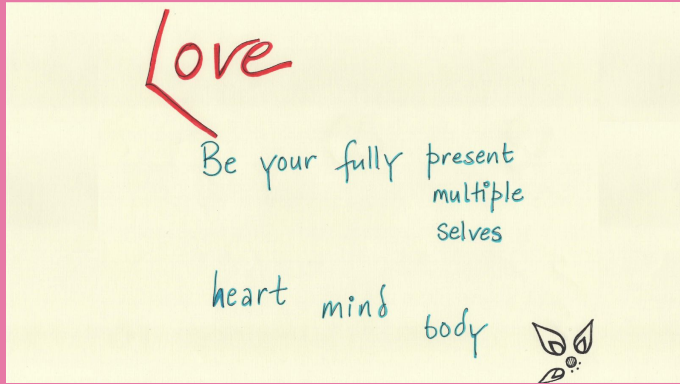 Love
Be your fully present
multiple
selves
heart mind body